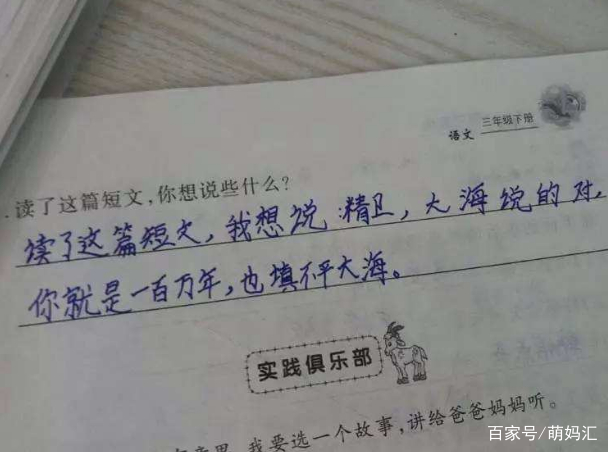 语文 三年级下册
.读了这篇短文,你想说些什么?
读了这篇短文,我想说:精卫,大海说的对,
你就是一百万年,也填不平大海。
实践俱乐部
我要选一个故事,讲给爸爸妈妈听。
百家号/萌妈汇